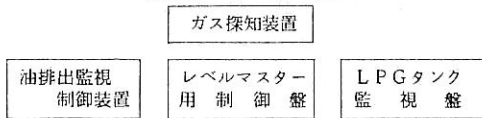 ガス探知装置
油排出監視
制御装置
レベルマスター
用制御盤
LPGタンク
監視盤